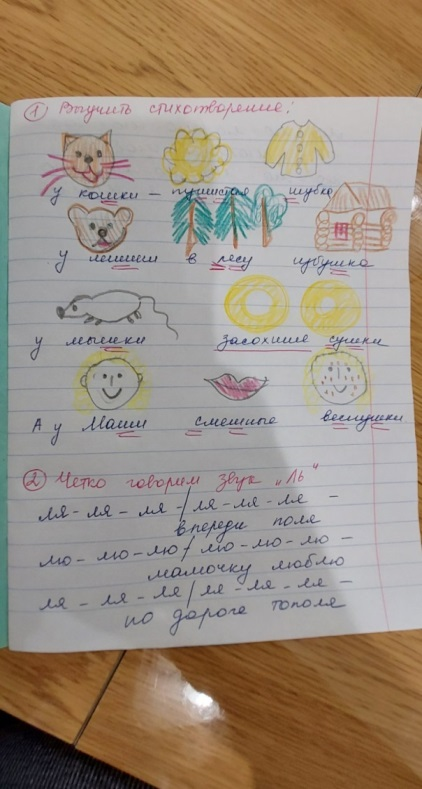 ① Выучить стихотворение:
у кошки – пушистая шубка
у мишки в лесу избушка
у мышки засохшие сушки
А у Маши смешные веснушки
② Четко говорим звук „Ль"
ля – ля – ля / ля – ля – ля –
впереди поля
лю – лю – лю / лю – лю – лю –
мамочку люблю
ля – ля – ля / ля – ля – ля –
по дороге тополя